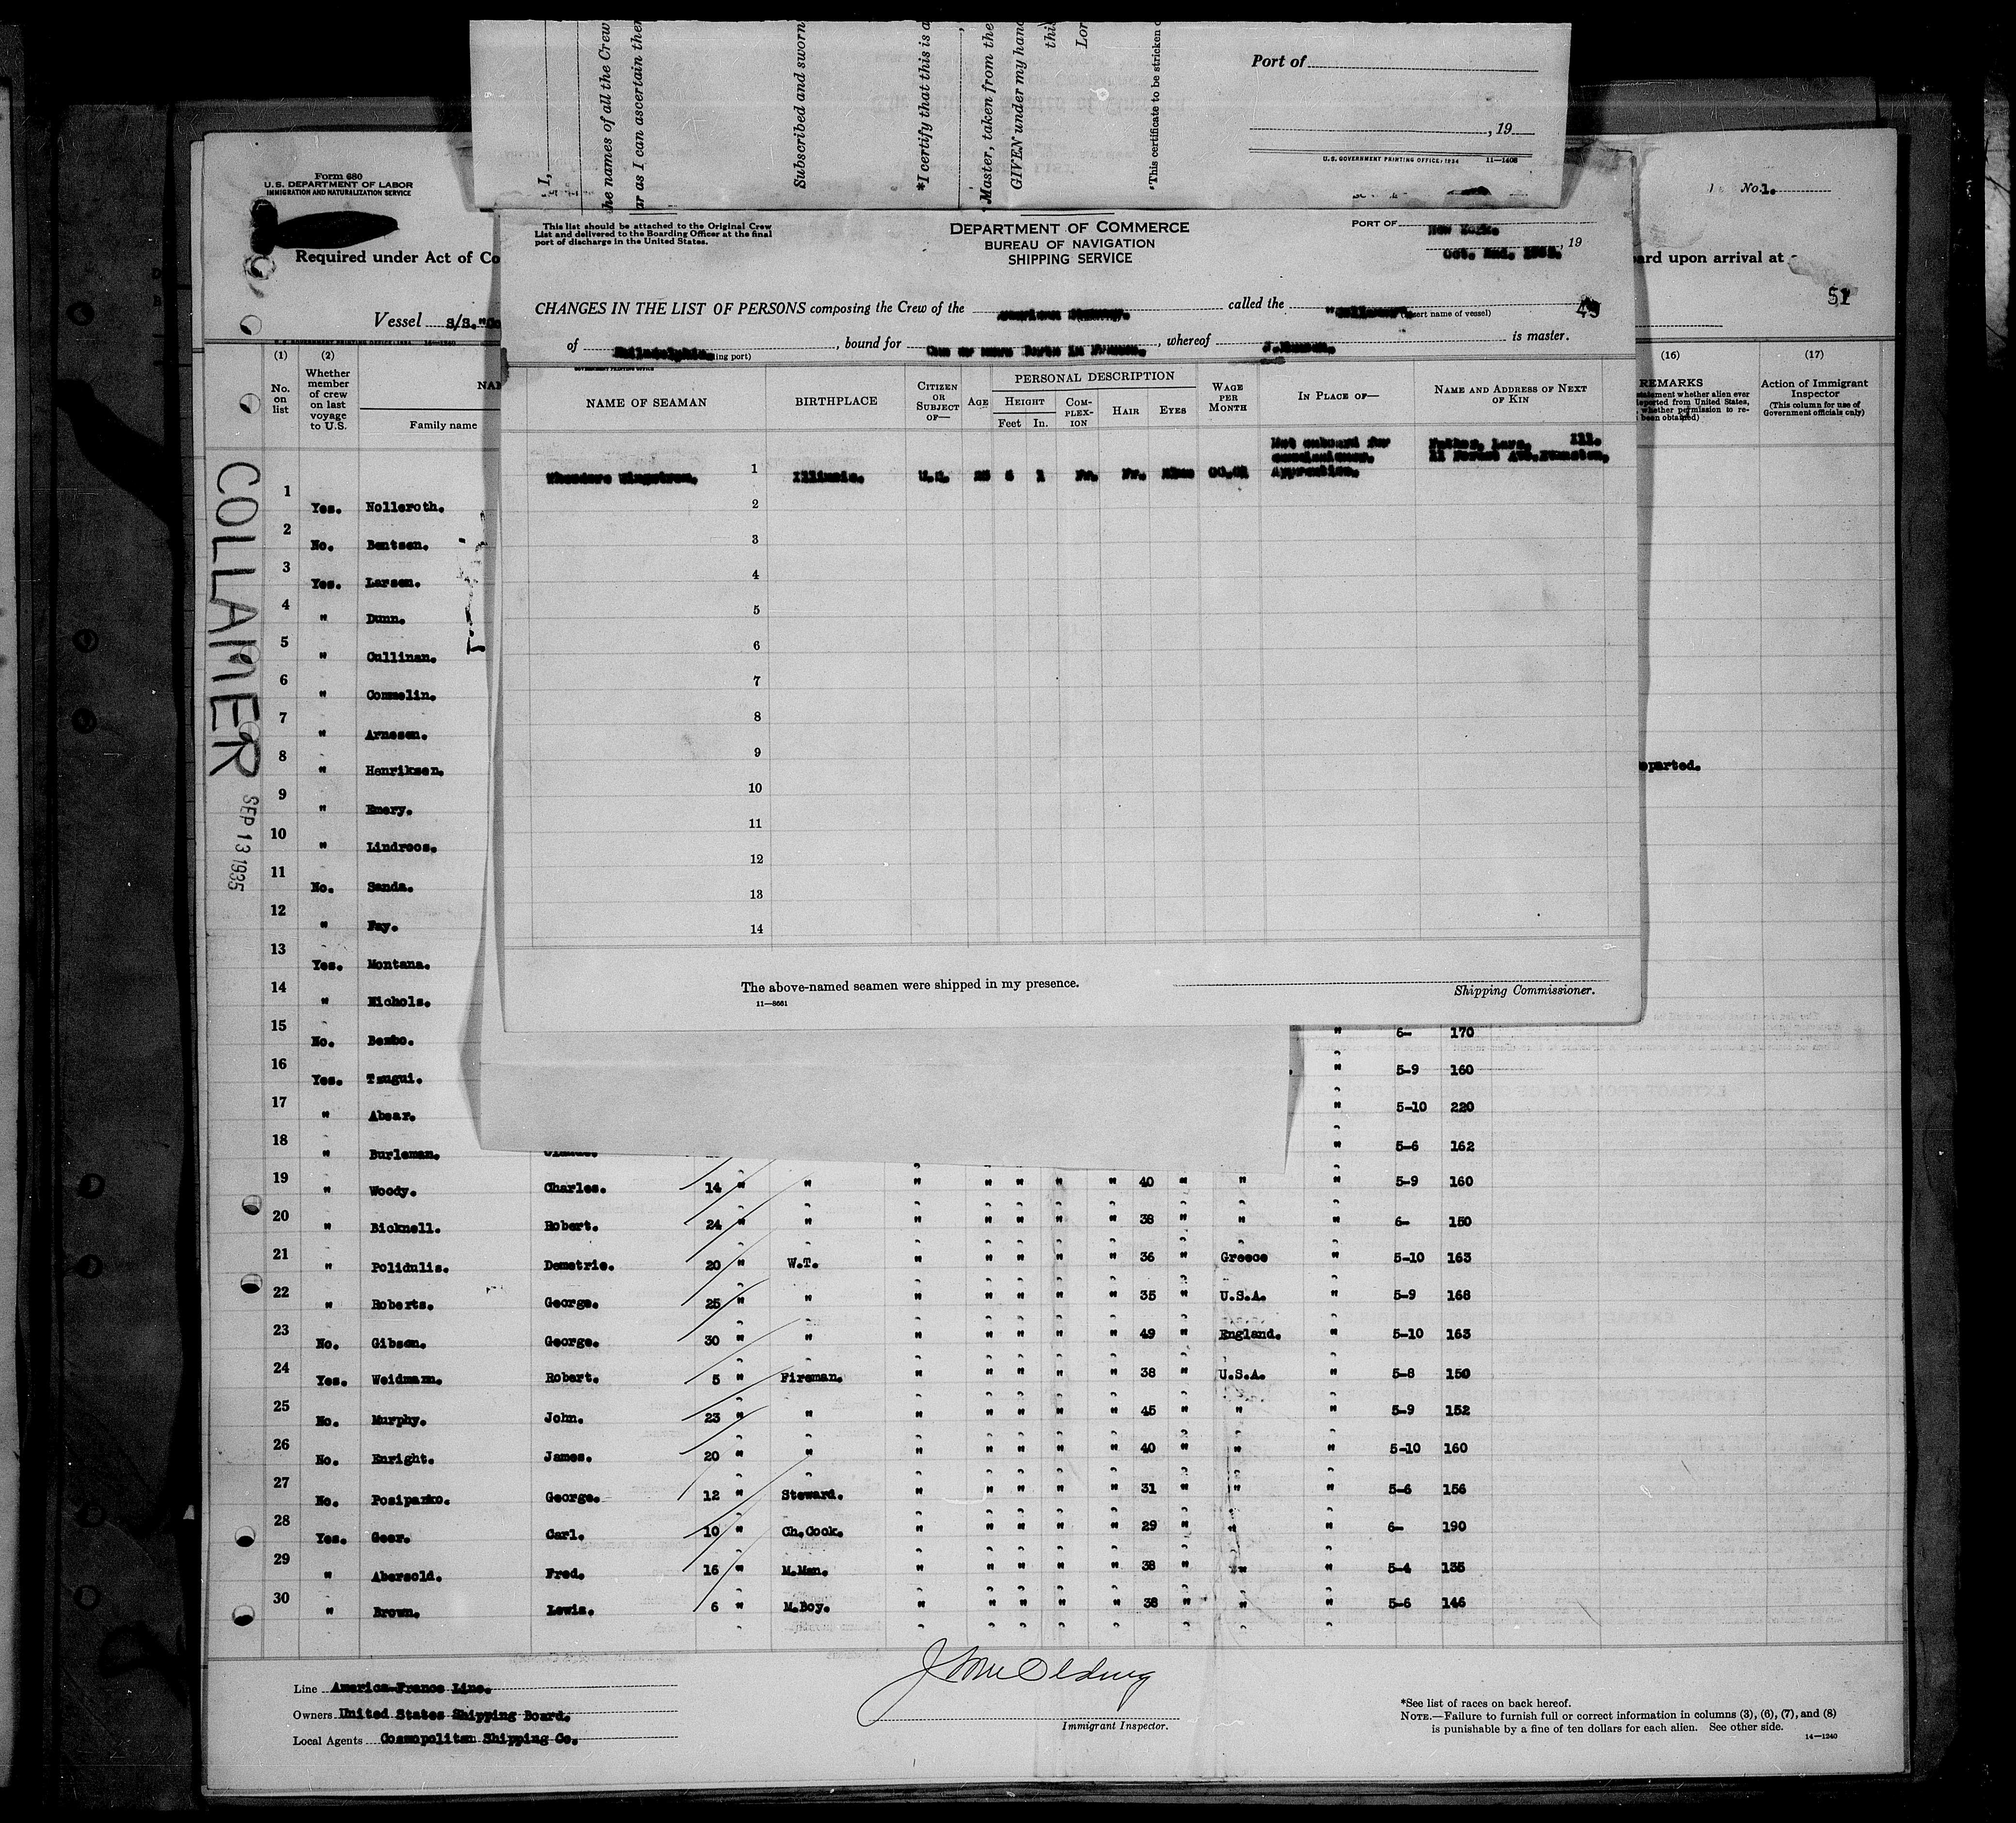 I,
he names of all the Crew
ar as I can ascertain
Subscribed and sworn
*I certify that this is a
Master, taken from the
GIVEN under my hand
this
*This certificate to be stricken
Port of
, 19
U. S. GOVERNMENT PRINTING OFFICE: 1934 11—1408
Form 680
U. S. DEPARTMENT OF LABOR
IMMIGRATION AND NATURALIZATION SERVICE
No. 1.
Required under Act of
ard upon arrival at
51
Vessel S/S.
This list should be attached to the Original Crew
List and delivered to the Boarding Officer at the final
port of discharge in the United States.
DEPARTMENT OF COMMERCE
BUREAU OF NAVIGATION
SHIPPING SERVICE
PORT OF New York.
Oct. 2nd. 1935. , 19
CHANGES IN THE LIST OF PERSONS composing the Crew of the American Steamer. called the (Insert name of vessel)
49
of Philadelphia. , bound for One or more Ports in France. , whereof is master.
NAME OF SEAMAN BIRTHPLACE CITIZEN OR SUBJECT OF— AGE PERSONAL DESCRIPTION HEIGHT Feet In. COMPLEXION HAIR EYES WAGE PER MONTH IN PLACE OF— NAME AND ADDRESS OF NEXT OF KIN
Not onboard for Father, Lars, Ill.
11 Forest Ave. Evanston,
1 Theodore Illinois. U.S. 6 1 Fr. Fr. Blue Apprentice.
2
3
4
5
6
7
8
9
10
11
12
13
14
The above-named seamen were shipped in my presence.
11—8661
Shipping Commissioner.
(1) (2)
No. on list
Whether member of crew on last voyage to U.S.
Family name
(16) (17)
REMARKS
Action of Immigrant Inspector
(This column for use of Government officials only)
COLLAMER
SEP 13 1935
1 Yes. Nolleroth.
2 No. Bentsen.
3 Yes. Larsen.
4 " Dunn.
5 " Cullinan.
6 " Commelin.
7 " Arnesen.
8 " Henriksen. eparted.
9 " Emery.
10 " Lindroos.
11 No. Sanda.
12 " Fay.
13 Yes. Montana.
14 " Nichols.
15 No. Bembo. " 6- 170
16 Yes. Tsugui. " 5-9 160
17 " Absar. " 5-10 220
18 " Burleman. " 5-6 162
19 " Woody. Charles. 14 " " " " " " " 40 " " " 5-9 160
20 " Bicknell. Robert. 24 " " " " " " " 38 " " " 6- 150
21 " Polidulis. Demetrie. 20 " W.T. " " " " " 36 " Greece " 5-10 163
22 " Roberts. George. 25 " " " " " " " 35 " U.S.A. " 5-9 168
23 No. Gibson. George. 30 " " " " " " " 49 " England. " 5-10 163
24 Yes. Weidmann. Robert. 5 " Fireman. " " " " " 38 " U.S.A. " 5-8 150
25 No. Murphy. John. 23 " " " " " " " 45 " " " 5-9 152
26 No. Enright. James. 20 " " " " " " " 40 " " " 5-10 160
27 No. Posiparko. George. 12 " Steward. " " " " " 31 " " " 5-6 156
28 Yes. Geer. Carl. 10 " Ch.Cook. " " " " " 29 " " " 6- 190
29 " Abersold. Fred. 16 " M.Man. " " " " " 38 " " " 5-4 135
30 " Brown. Lewis. 6 " M.Boy. " " " " " 38 " " " 5-6 146
Line America-France Line.
Owners United States Shipping Board.
Local Agents Cosmopolitan Shipping Co.
Immigrant Inspector.
*See list of races on back hereof.
NOTE.—Failure to furnish full or correct information in columns (3), (6), (7), and (8)
is punishable by a fine of ten dollars for each alien. See other side.
14—1240